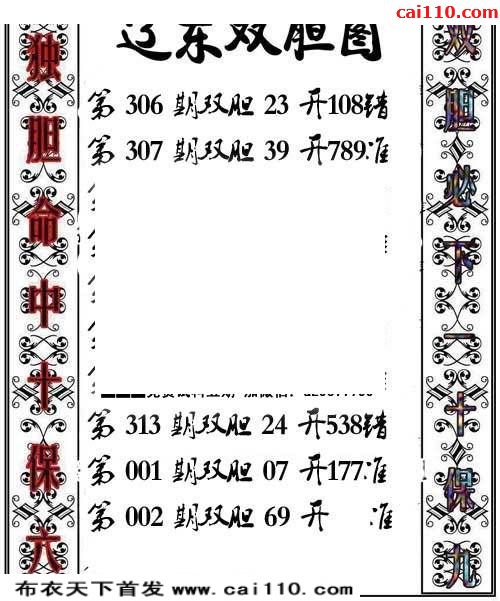 cai110.com
辽东双胆图
独胆命中十保六
第 306 期双胆 23 开108错
第 307 期双胆 39 开789准
第 313 期双胆 24 开538错
第 001 期双胆 07 开177准
第 002 期双胆 69 开 准
双胆必下一十保九
布衣天下首发 www.cai110.com